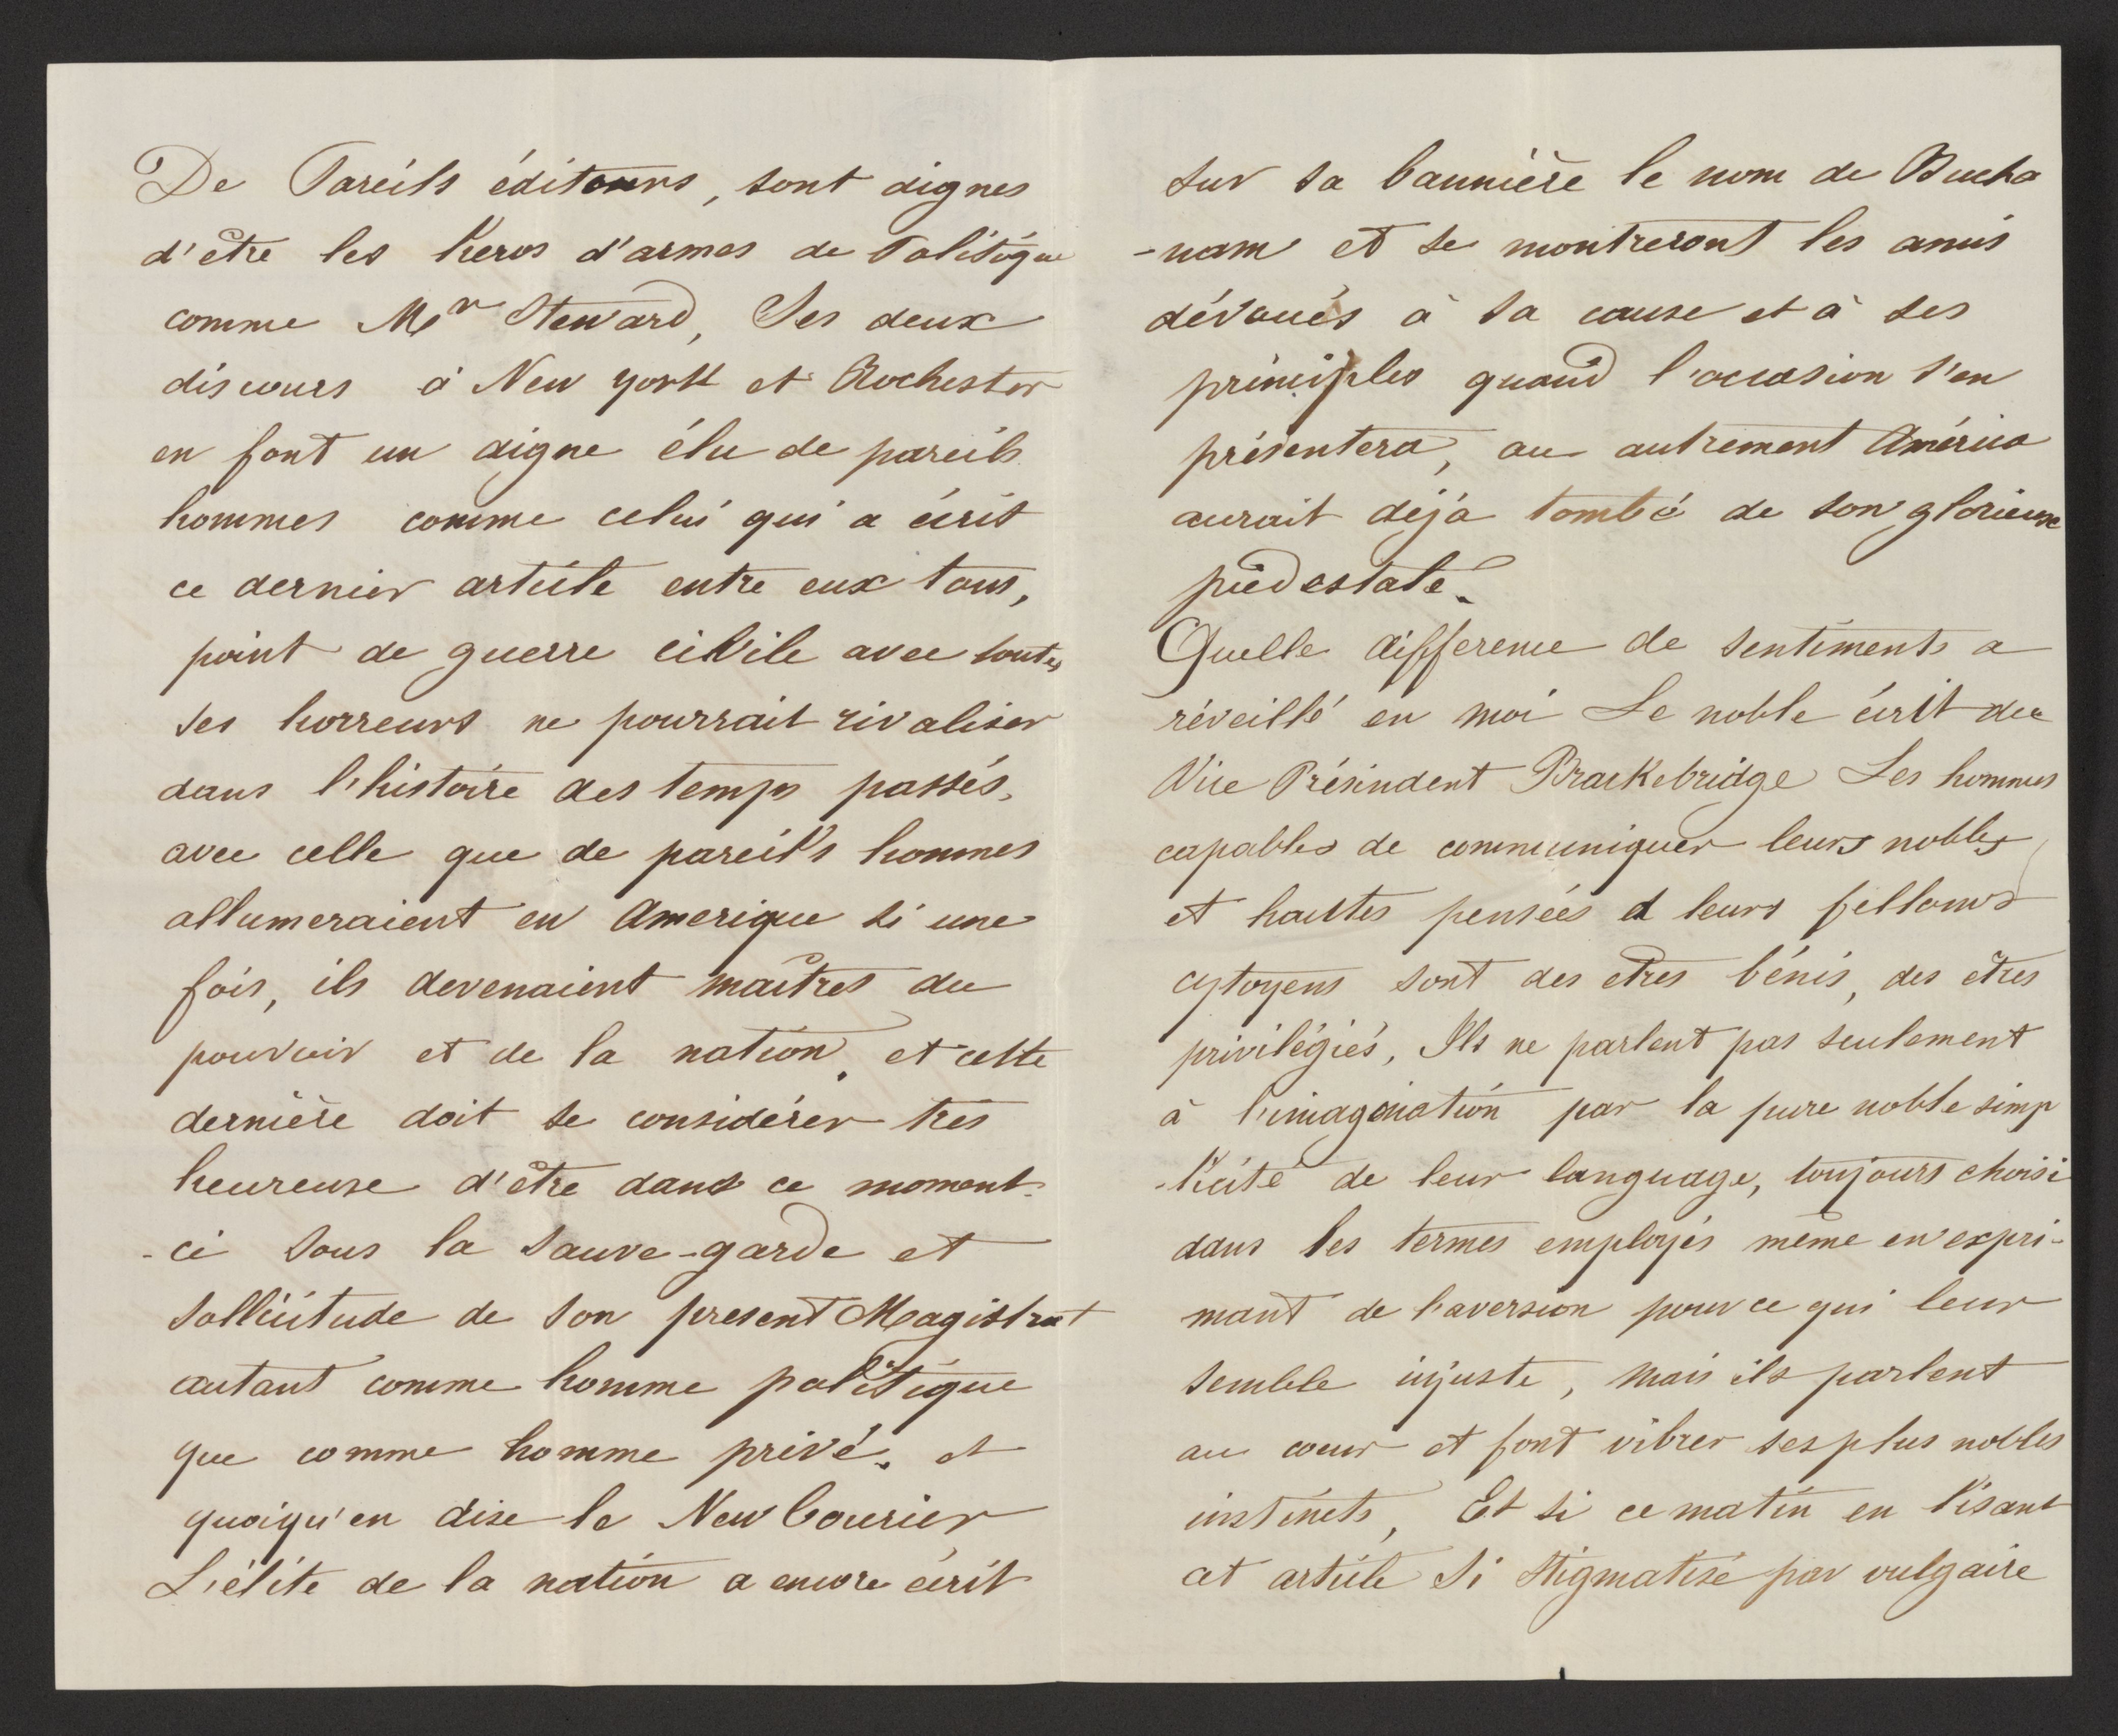 De Pareils éditeurs, sont dignes
d'être les heros d'armes de Politique
comme Mr Steward, Ses deux
discours à New york et Rochester
en font un digne élu de pareils
hommes comme celui qui a écrit
ce dernier article entre eux tous,
point de guerre civile avec toutes
ses horreurs ne pourrait rivaliser
dans l'histoire des temps passés,
avec celle que de pareils hommes
allumeraient en Amerique si une
fois, ils devenaient maîtres du
pouvoir et de la nation. et cette
dernière doit se considérer très
heureuse d'être dans ce moment
-ci sous la sauve-garde et
sollicitude de son present Magistrat
autant comme homme politique
que comme homme privé. et
quoiqu'en dise le New Courier
L'élite de la nation a encore écrit
sur sa bannière le nom de Bucha
-nam et se montreront les amis
dévoués à sa cause et à ses
principles quand l'occasion s'en
présentera, au autrement América
aurait déjà tombé de son glorieuse
piedestale.
Quelle difference de sentiments a
réveillé en moi Le noble écrit du
Vice Présindent Brackebridge Les hommes
capables de communiquer leurs nobles
et hautes pensées à leurs fellows
cytoyens sont des etres bénis, des êtres
privilégiés, Ils ne parlent pas seulement
à l'imagination par la pure noble simp
-licité de leur language, toujours choisi
dans les termes employés même en expri-
mant de l'aversion pour ce qui leur
semble injuste, mais ils parlent
au coeur et font vibrer ses plus nobles
instincts, Et si ce matin en lisant
cet article si stigmatisé par vulgaire